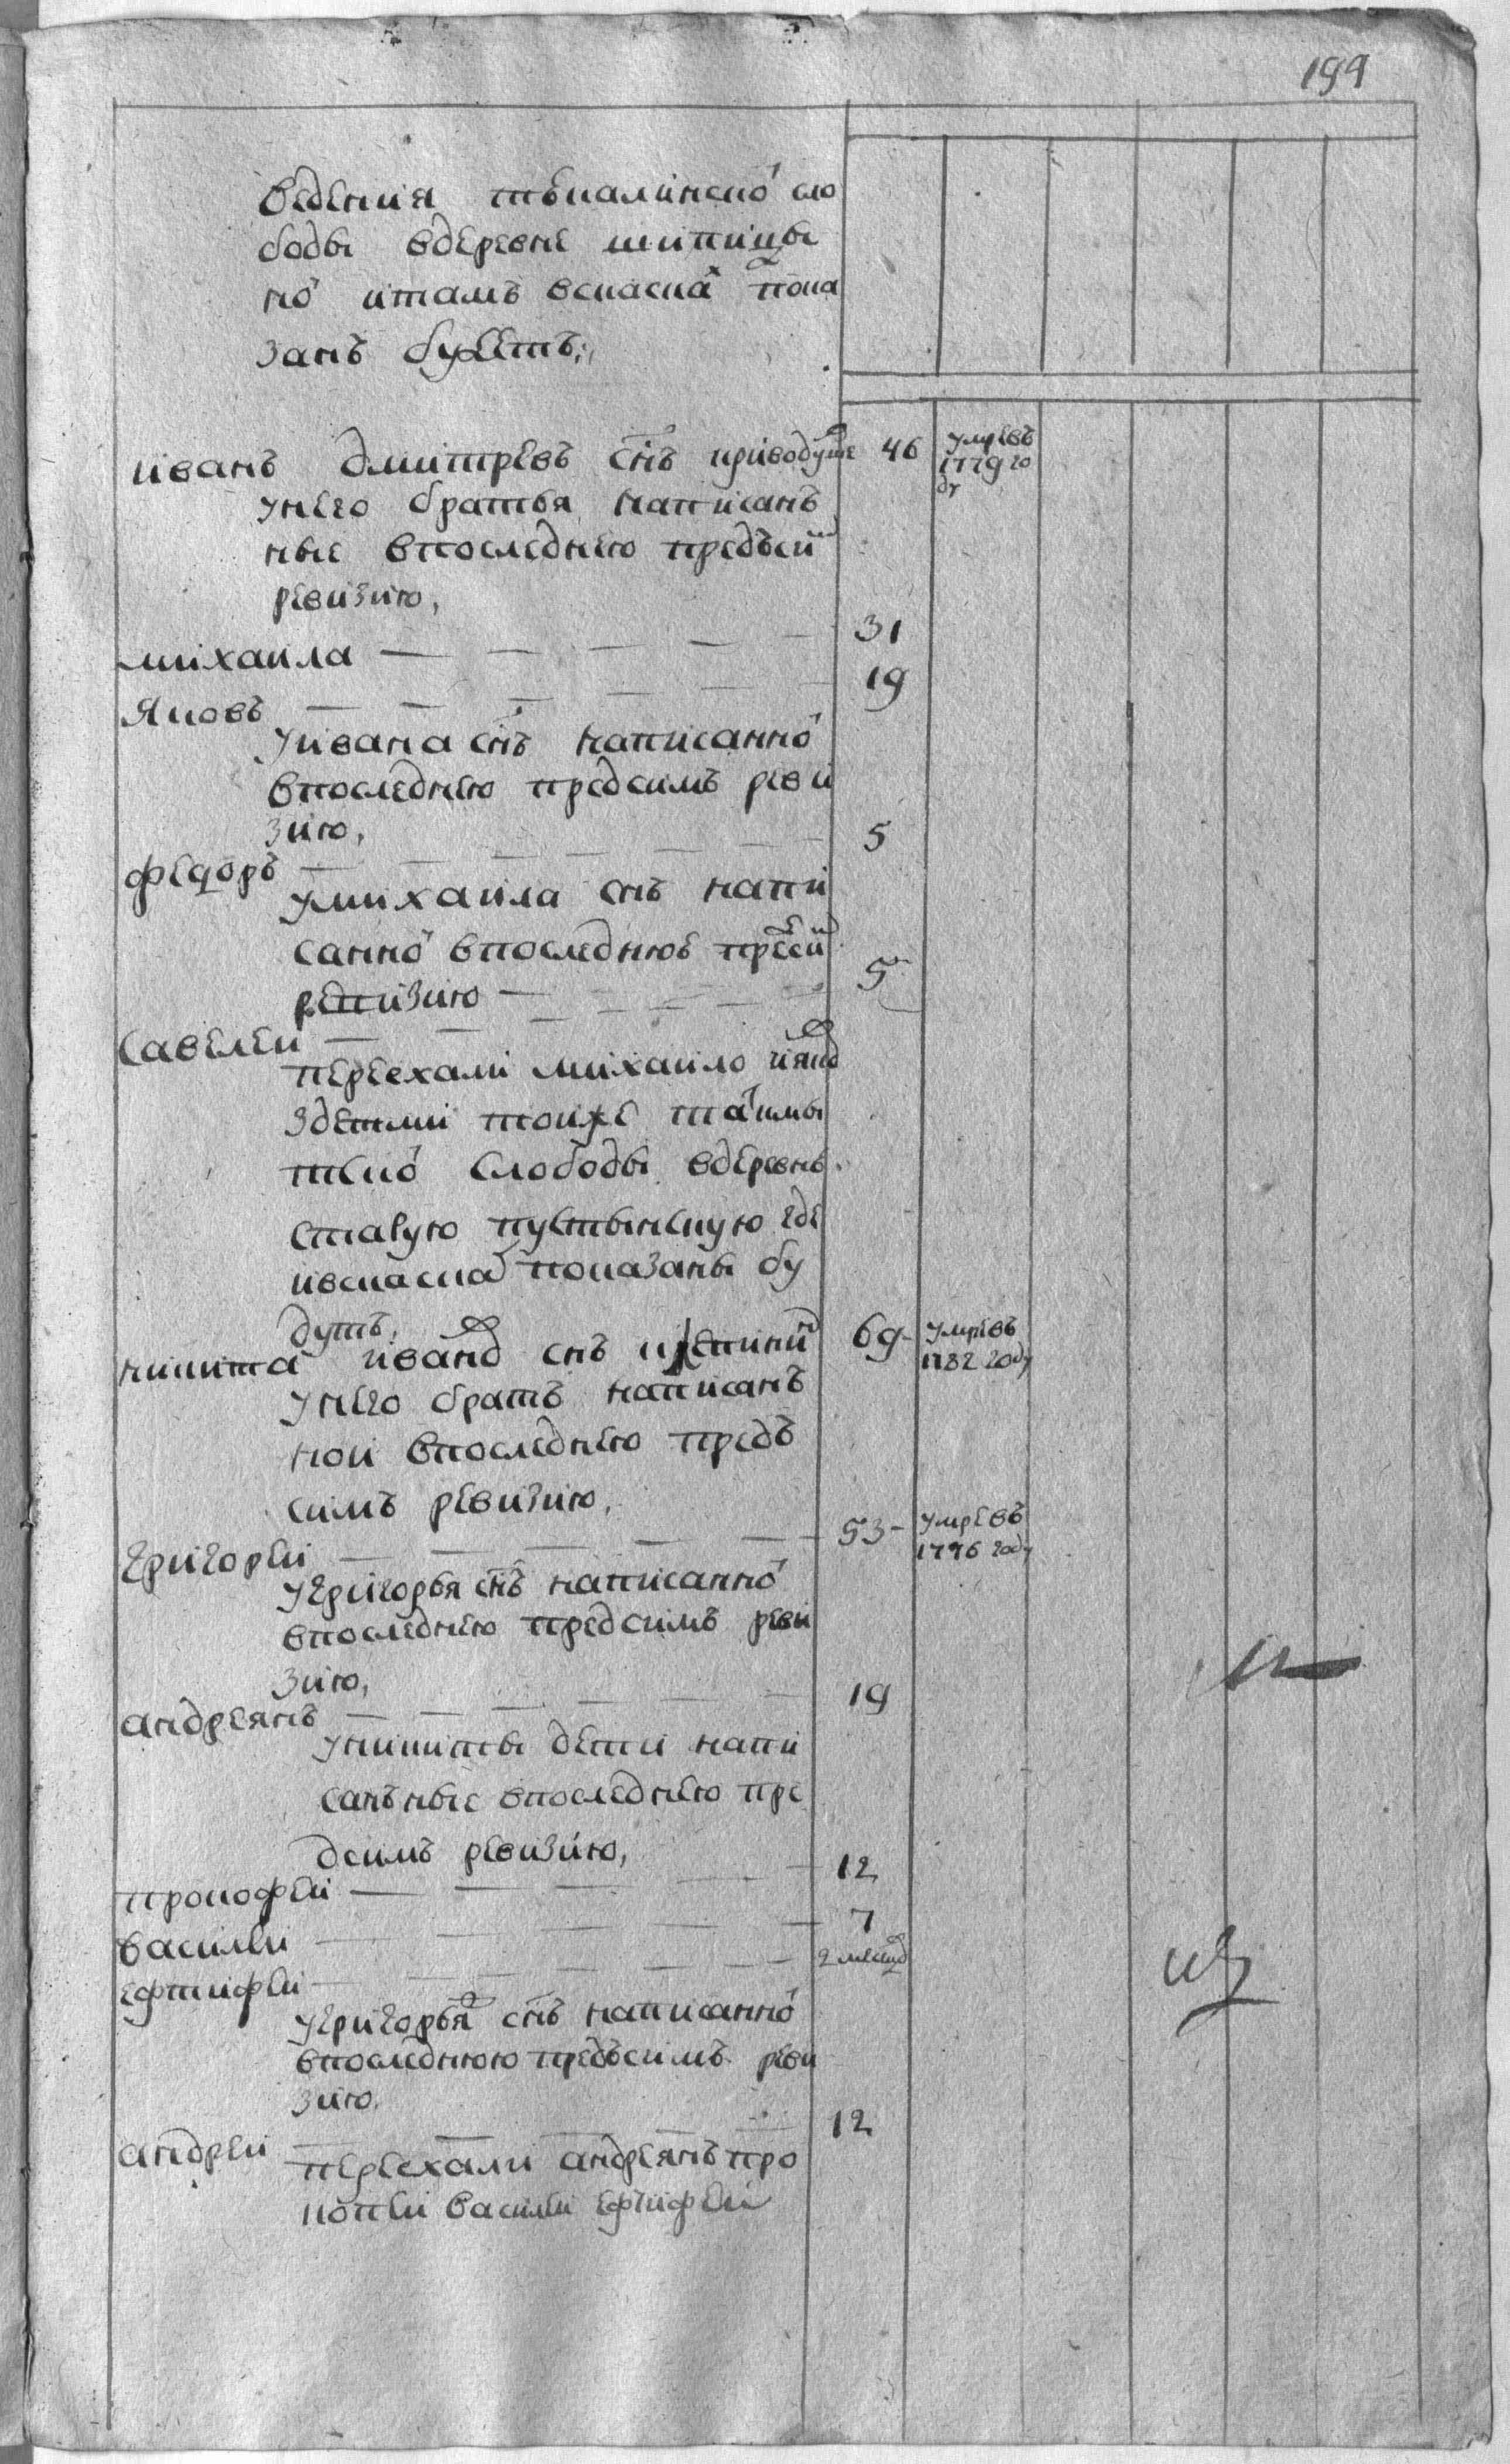 199
ведения тѣкалинско сло
боды вдеревне шипицы
но итамъ вскаска пока
занъ будетъ,
иванъ дмитревъ снъ криводуше 46 умревъ
1779 го
ду
унего братья написанъ
ные впоследнею предъсим
ревизию,
михаила — 31
яковъ — 19
уивана снъ написанно
впоследнею предсимъ реви
зию,
федоръ — 5
умихаила снъ напи
санно впоследнюе пресим
ревизию
савелеи — 5
переехали михаило ияков
здетми тоиже
слободы вдеревнѣ
старую пустынскую где
ивскаска показаны бу
дутъ,
никита иванов снъ 69 умревъ
1782 году
унего братъ написанъ
нои впоследнею предъ
симъ ревизию,
григореи — 53 умревъ
1776 году
угригорья снъ написанно
впоследнею предсимъ реви
зию,
андреянъ — 19
уникиты дети напи
санъные впоследнею пре
дсимъ ревизию,
прокофеи — 12
василеи — 7
ефтифеи — 2 месяцов
угригорья снъ написанно
впоследнюю предъсимъ реви
зию.
андреи — 12
переехали андреянъ про
копеи василеи ефтифеи